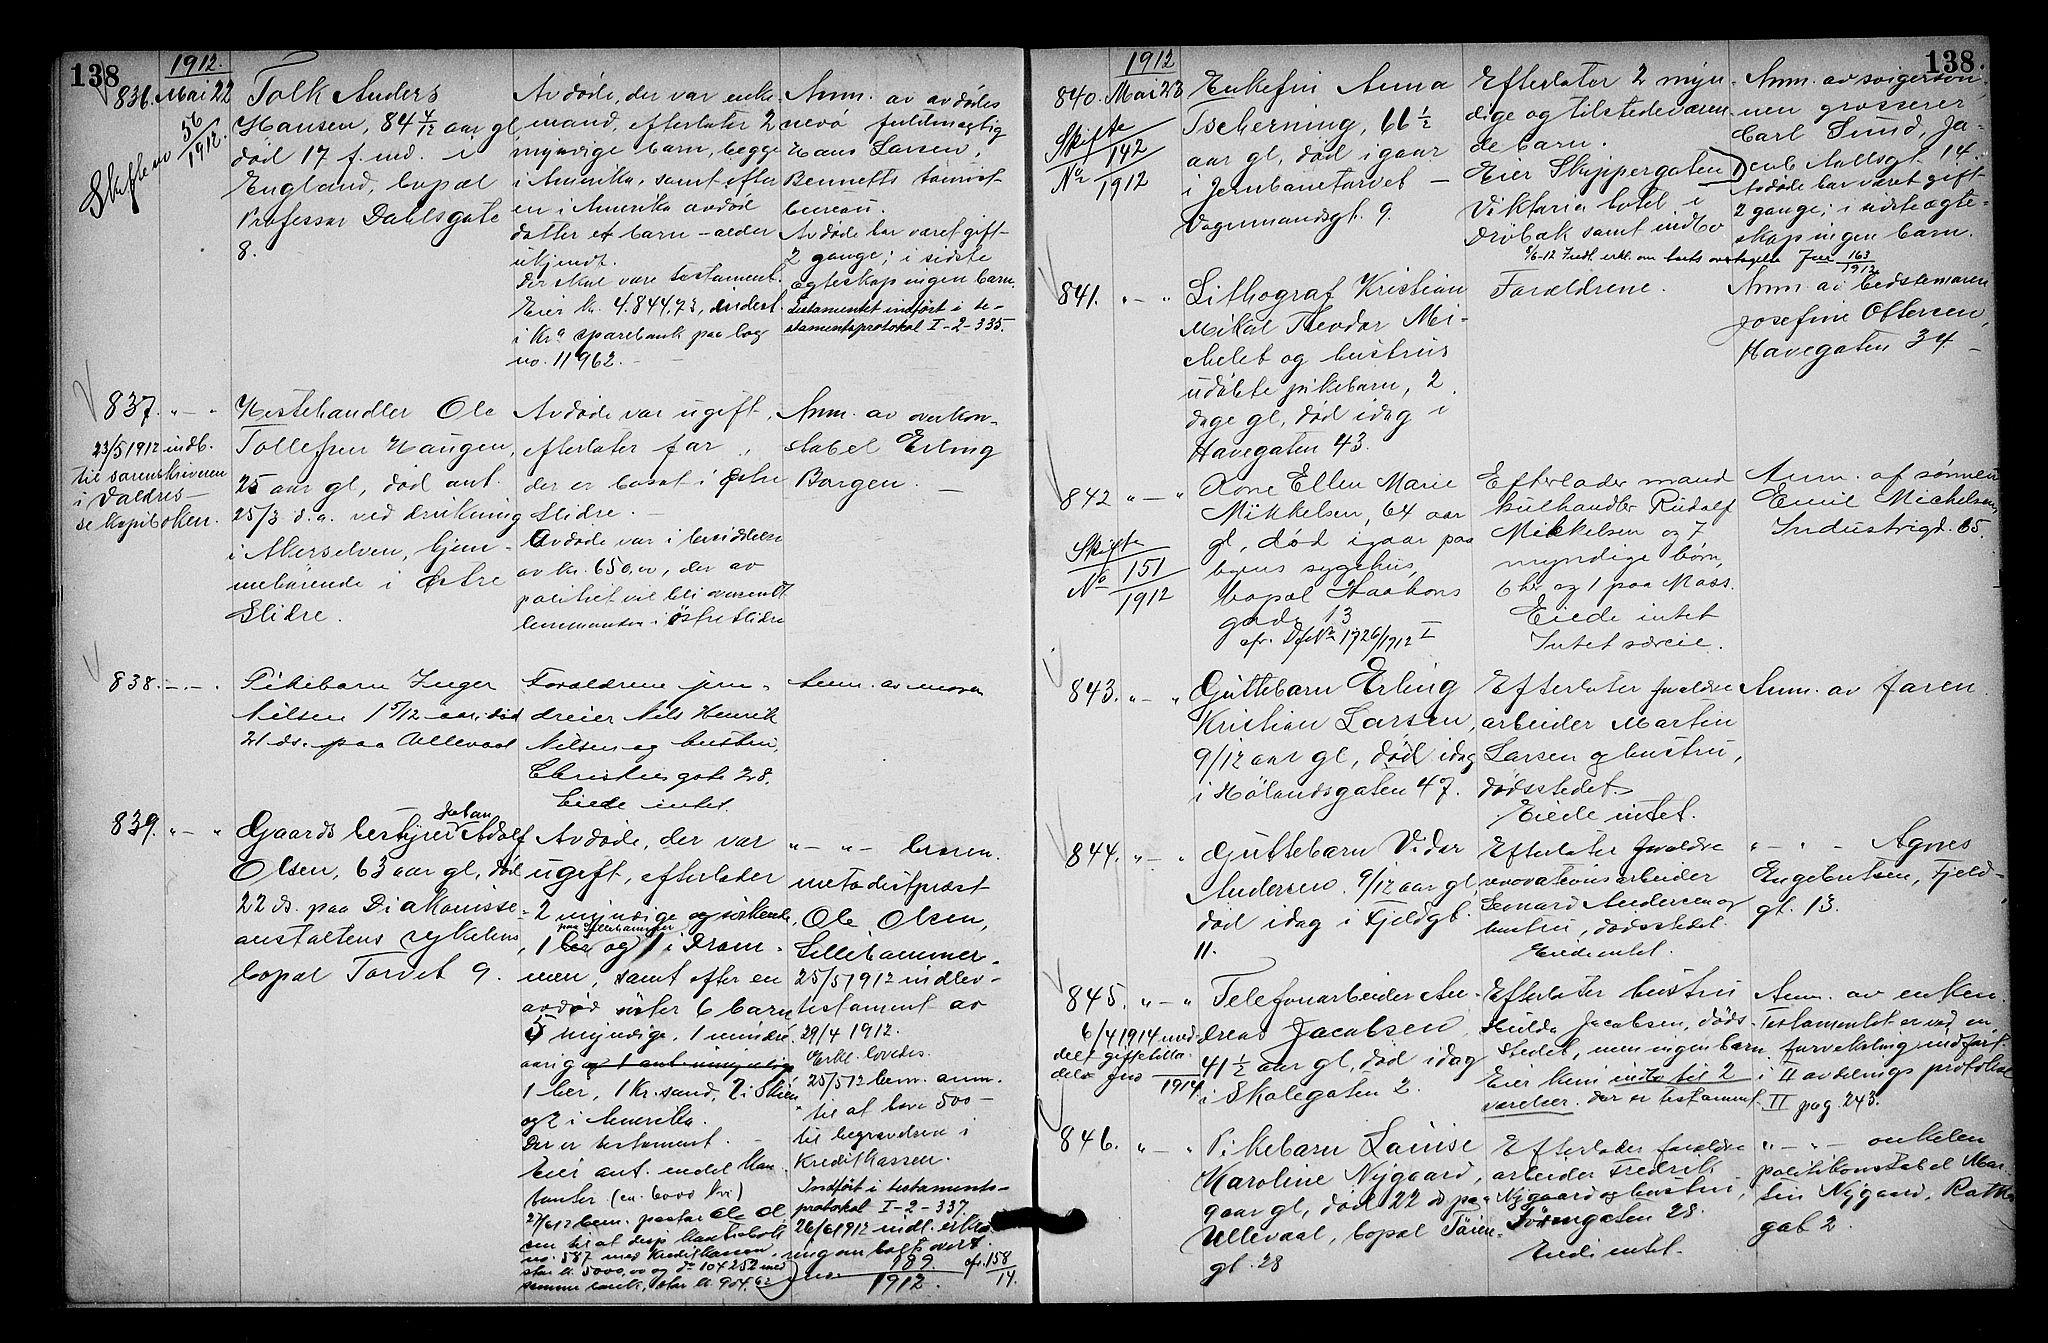 138
1912.
836. Mai 22
Skifte no 56/1912.
Tolk Anders
Hansen, 84 4/12 aar gl
død 17 f. md. i
England, bopæl
Professor Dahlsgate
8.
Avdøde, der var enke-
mand, efterlater 2
myndige barn, begge
i Amerika, samt efter
en i Amerika avdød
datter et barn - alder
ukjendt.
Der skal være testament.
Eier kr. 4.844,73, indest.
i Kr.a sparebank paa bog
no. 11962.
Anm. av avdødes
nevø fuldmægtig
Hans Larsen,
Bennetts turist-
bureau.
Avdøde har været gift
2 gange; i sidste
egteskap ingen barn.
Testamentet indført i te-
stamentsprotokol I-2-335.
837. " — "
23/5 1912 indb.
til sorenskriveren
i Valdres —
se kopiboken.
Hestehandler Ole
Tollefsen Haugen,
25 aar gl, død ant.
25/3 d.a. ved drukning
i Akerselven, hjem-
mehørende i Østre
Slidre.
Avdøde var ugift,
efterlater far,
der er bosat i Østre
Slidre. —
Avdøde var i besiddelse
av kr. 650,00, der av
politiet vil bli oversendt
lensmanden i Østre Slidre
Anm. av overkon-
stabel Erling
Borgen. —
838. — " — .
Pikebarn Inger
Nilsen 1 5/12 aar, død
21 ds. paa Ullevaal
Forældrene jern-
dreier Nils Henrik
Nilsen og hustru,
Christies gate 28.
Eiede intet
Anm. av moren
839. " — "
Gaardsbestyrer Johan Adolf
Olsen, 63 aar gl, død
22 ds. paa Diakonisse-
anstaltens sykehus
bopæl Torvet 9.
Avdøde, der var
ugift, efterlader
2 myndige søskende,
1 paa Lillehammer og 1 i Dram-
men, samt efter en
avdød søster 6 barn
5 myndige, 1 mindre-
aarig
1 her, 1 Kr.sand, 2 i Skien
og 2 i Amerika.
Der er testament. —
Eier ant. endel kon-
tanter (ca. 6000 kr)
27/6 12 bem. pastor Ole Ol
sen til at disp kontrabok
no. 587 med Kreditkassen,
stor kr. 5000,00 og do 104252 med
samme bank, stor kr. 904,62
" — " — broren.
metodistprest
Ole Olsen,
Lillehammer.
25/5 1912 indlev-
testament av
29/4 1912.
Erkl. lovedes.
25/5 12 bem. anm.
til at heve 500 —
til begravelsen i
Kreditkassen.
Indført i testaments-
protokol I-2-337.
26/6 1912 indl. erklæ-
ring om boets overt.
Jno. 189/1912. ofr. 158/14.
138.
1912
840. Mai 23
Skifte
No 142/1912
Enkefru Anna
Tscherning, 66 1/2
aar gl, død igaar
i Jernbanetorvet —
Vognmandsgt. 9.
Efterlater 2 myn
dige og tilstedeværen
de barn.
Eier Skippergaten
Viktoria hotel i
Drøbak samt indbo
8/6-12 Indl. erkl. om boets overtagelse Jno 163/1912
Anm. av svigersøn
nen grosserer
Carl Lund, Ja-
cob Aallsgt. 14.
Avdøde har været gift
2 gange; i sidste egte-
skap ingen barn.
841. " — "
Lithograf Kristian
Mikal Theodor Mi-
chelet og hustrus
udøbte pikebarn, 2
dage gl, død idag i
Havegaten 43.
Forældrene.
Anm. av bedstemoren
Josefine Ottersen,
Havegaten 34 —
842 " — "
Skifte
No 151/1912
Kone Ellen Marie
Mikkelsen, 64 aar
gl, død igaar paa
byens sygehus,
bopæl Haakons
gade 13
ofr. Df No 1726/1912 I
Efterlader mand
kulhandler Rudolf
Mikkelsen og 7
myndige børn,
6 her og 1 paa Moss.
Eiede intet
Intet særeie.
Anm. af sønnen
Emil Mickelsen,
Industrigd. 65.
843. " — "
Guttebarn Erling
Kristian Larsen,
9/12 aar gl, død idag
i Hølandsgaten 47.
Efterlater forældre
arbeider Martin
Larsen og hustru,
dødsstedet.
Eiede intet.
Anm. av faren.
844. " — "
Guttebarn Vidar
Andersen. 9/12 aar gl,
død idag i Fjeldgt.
11.
Efterlater forældre
renovationsarbeider
Leonard Andersen og
hustru, dødsstedet.
Eiede intet.
" — " — Agnes
Engebretsen, Fjeld-
gt. 13.
845. " — "
6/4 1914 med
delt giftetilla-
delse Jno /1914.
Telefonarbeider An-
dreas Jacobsen
41 1/2 aar gl, død idag
i Skolegaten 2.
Efterlater hustru
Hulda Jacobsen, døds-
stedet, men ingen barn.
Eier kun indbo til 2
værelser. Der er testament.
Anm. av enken.
Testamentet er ved en
forveksling indført
i II avdelings protokol
II pag. 243.
846. " — "
Pikebarn Louise
Karoline Nygaard,
9 aar gl, død 22 ds paa
Ullevaal, bopæl Tøien-
gt. 28
Efterlader forældre
arbeider Fredrik
Nygaard og hustru,
Tøiengaten 28.
Eiede intet.
" — " — onkelen
politikonstabel Mar-
tin Nygaard, Rathke
gat 2.